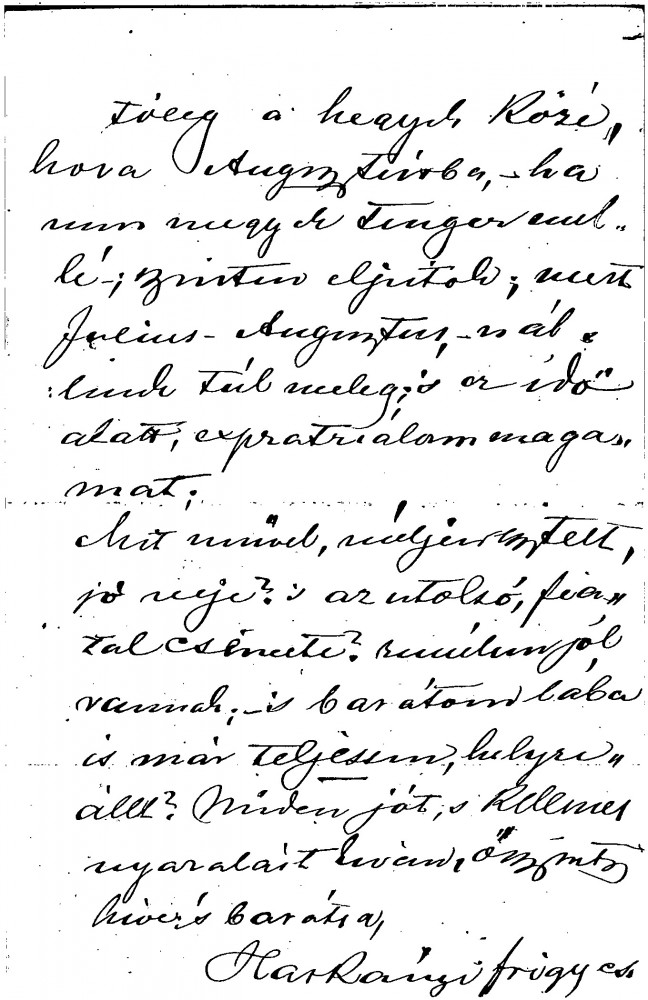 főleg a hegyek közé,
hova Augusztusba, – ha
nem megyek tenger mel„
lé –; szintén eljutok; mert
Julius – Augusztus, – nál„
lunk túl meleg; s ez idő
alatt, expatriálom maga„
mat;
Mit művel, mélyen tisztelt,
jó neje? s az utolsó, fia„
tal csemete? remélem jól
vannak; – s barátom lába
is már teljesen, helyre„
állt? Minden jót, s kellemes
nyaralást kíván, őszinte
hive és barátja,
Harkányi Frigyes.